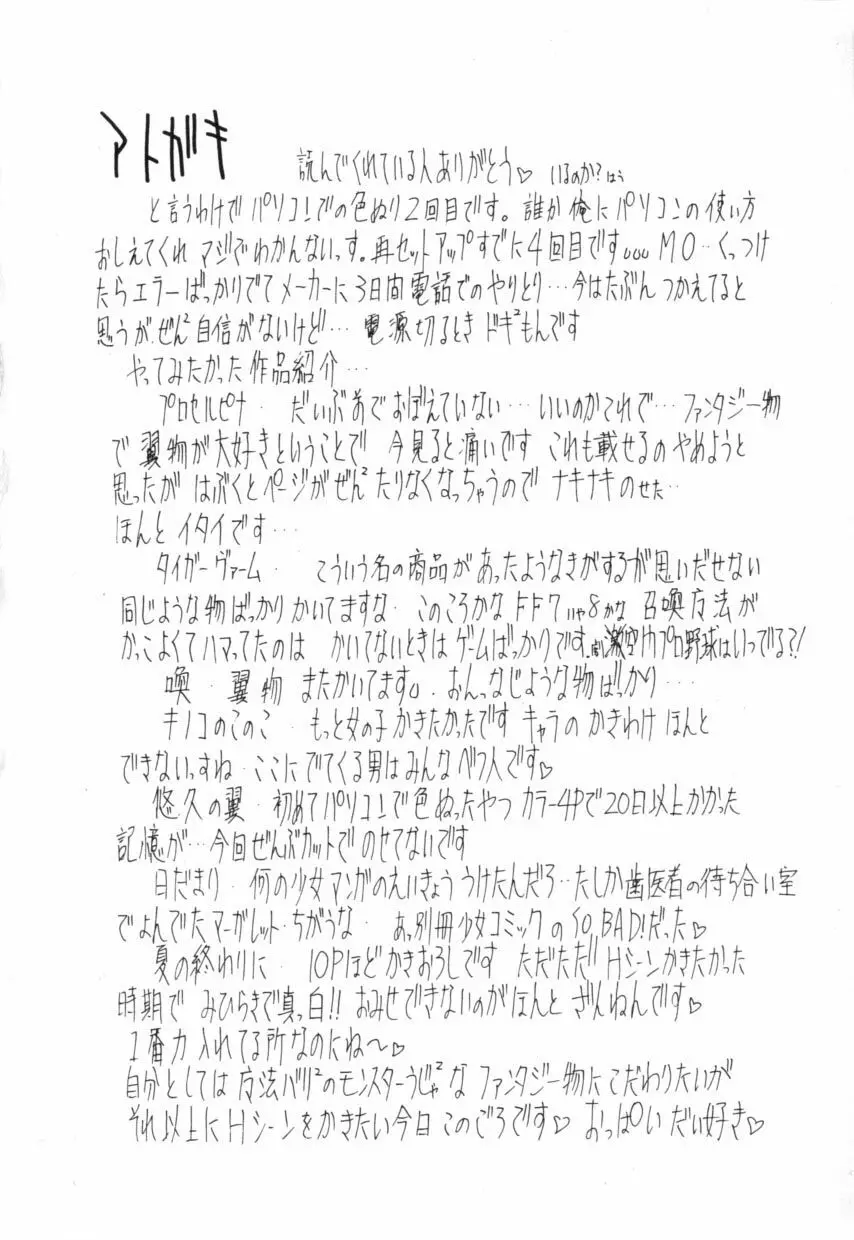 アトガキ
読んでくれている人ありがとう♡ いるのか?はぅ
と言うわけでパソコンでの色ぬり2回目です。誰か俺にパソコンの使い方
おしえてくれ マジでわかんないっす。再セットアップすでに4回目です。。。MO‥くっつけ
たらエラーばっかりでてメーカーに3日間電話でのやりとり…今はたぶんつかえてると
思うが、ぜん²自信がないけど… 電源切るとき ドキ²もんです
やってみたかった作品紹介…
プロセルピナ・ だいぶ前でおぼえていない…いいのかこれで…ファンタジー物
で翼物が大好きということで 今見ると痛いです これも載せるのやめようと
思ったが はぶくとページがぜん²たりなくなっちゃうので ナキナキのせた‥
ほんと イタイです…
タイガーヴァーム・ こういう名の商品があったようなきがするが思いだせない
同じような物ばっかりかいてますな・ このころかなFF7いや8かな 召喚方法が
かっこよくてハマってたのは かいてないときはゲームばっかりです 激空間プロ野球はいつでる?!
喚・翼物 またかいてます。おんっなじような物ばっかり…
キノコのこのこ・ もっと女の子かきたかったです キャラのかきわけ ほんと
できないっすね・ここにでてくる男はみんなべつ人です♡
悠久の翼・初めてパソコンで色ぬったやつ カラー4Pで20日以上かかった
記憶が…今回ぜんぶカットでのせてないです
日だまり・何の少女マンガのえいきょううけたんだろ‥たしか歯医者の待ち合い室
でよんでたマーガレット・ちがうな・ あっ別冊少女コミックのSO BAD!だった♡
夏の終わりに・ 10Pほどかきおろしです ただただ!!Hシーンかきたかった
時期で みひらきで真っ白!! おみせできないのがほんと ざんねんです♡
1番力入れてる所なのにね〜♡
自分としては 方法バリ²のモンスターうじゃ²な ファンタジー物にこだわりたいが
それ以上にHシーンをかきたい今日このごろです♡ おっぱいだい好き♡